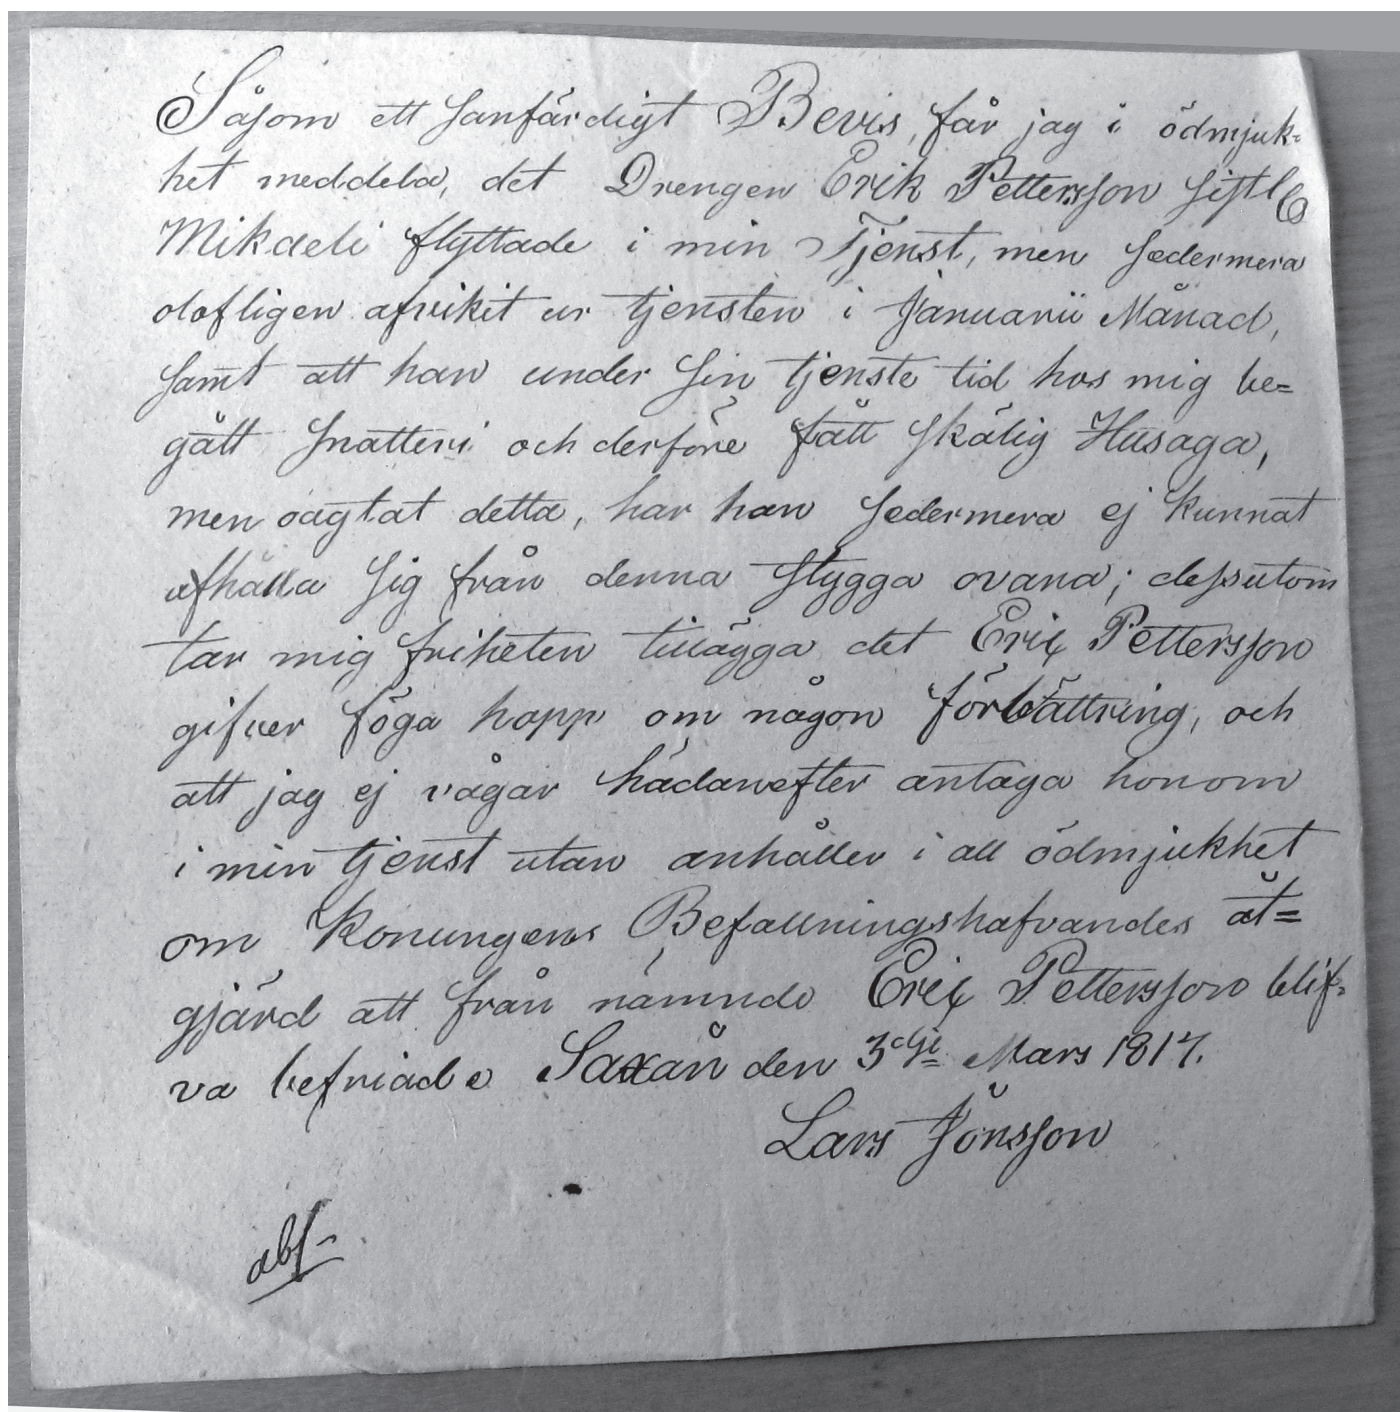 Såsom ett sanfärdigt Bevis, får jag i ödmjuk-
het meddela, det Drengen Erik Pettersson sistl
Mikaeli flyttade i min Tjenst, men sedermera
olofligen afvikit ur tjensten i Januarii Månad,
samt att han under sin tjenste tid hos mig be=
gått snatteri och derföre fått skälig Husaga,
men oagtat detta, har han sedermera ej kunnat
afhålla sig från denna stygga ovana; dessutom
tar mig friheten tillägga det Eric Pettersson
gifver föga hopp om någon förbättring, och
att jag ej vågar hädanefter antaga honom
i min tjenst utan anhåller i all ödmjukhet
om Konungens Befallningshafvandes åt=
gjärd att från nämnde Eric Pettersson blif=
va befriade Saxån den 3dje Mars 1817.
Lars Jönsson